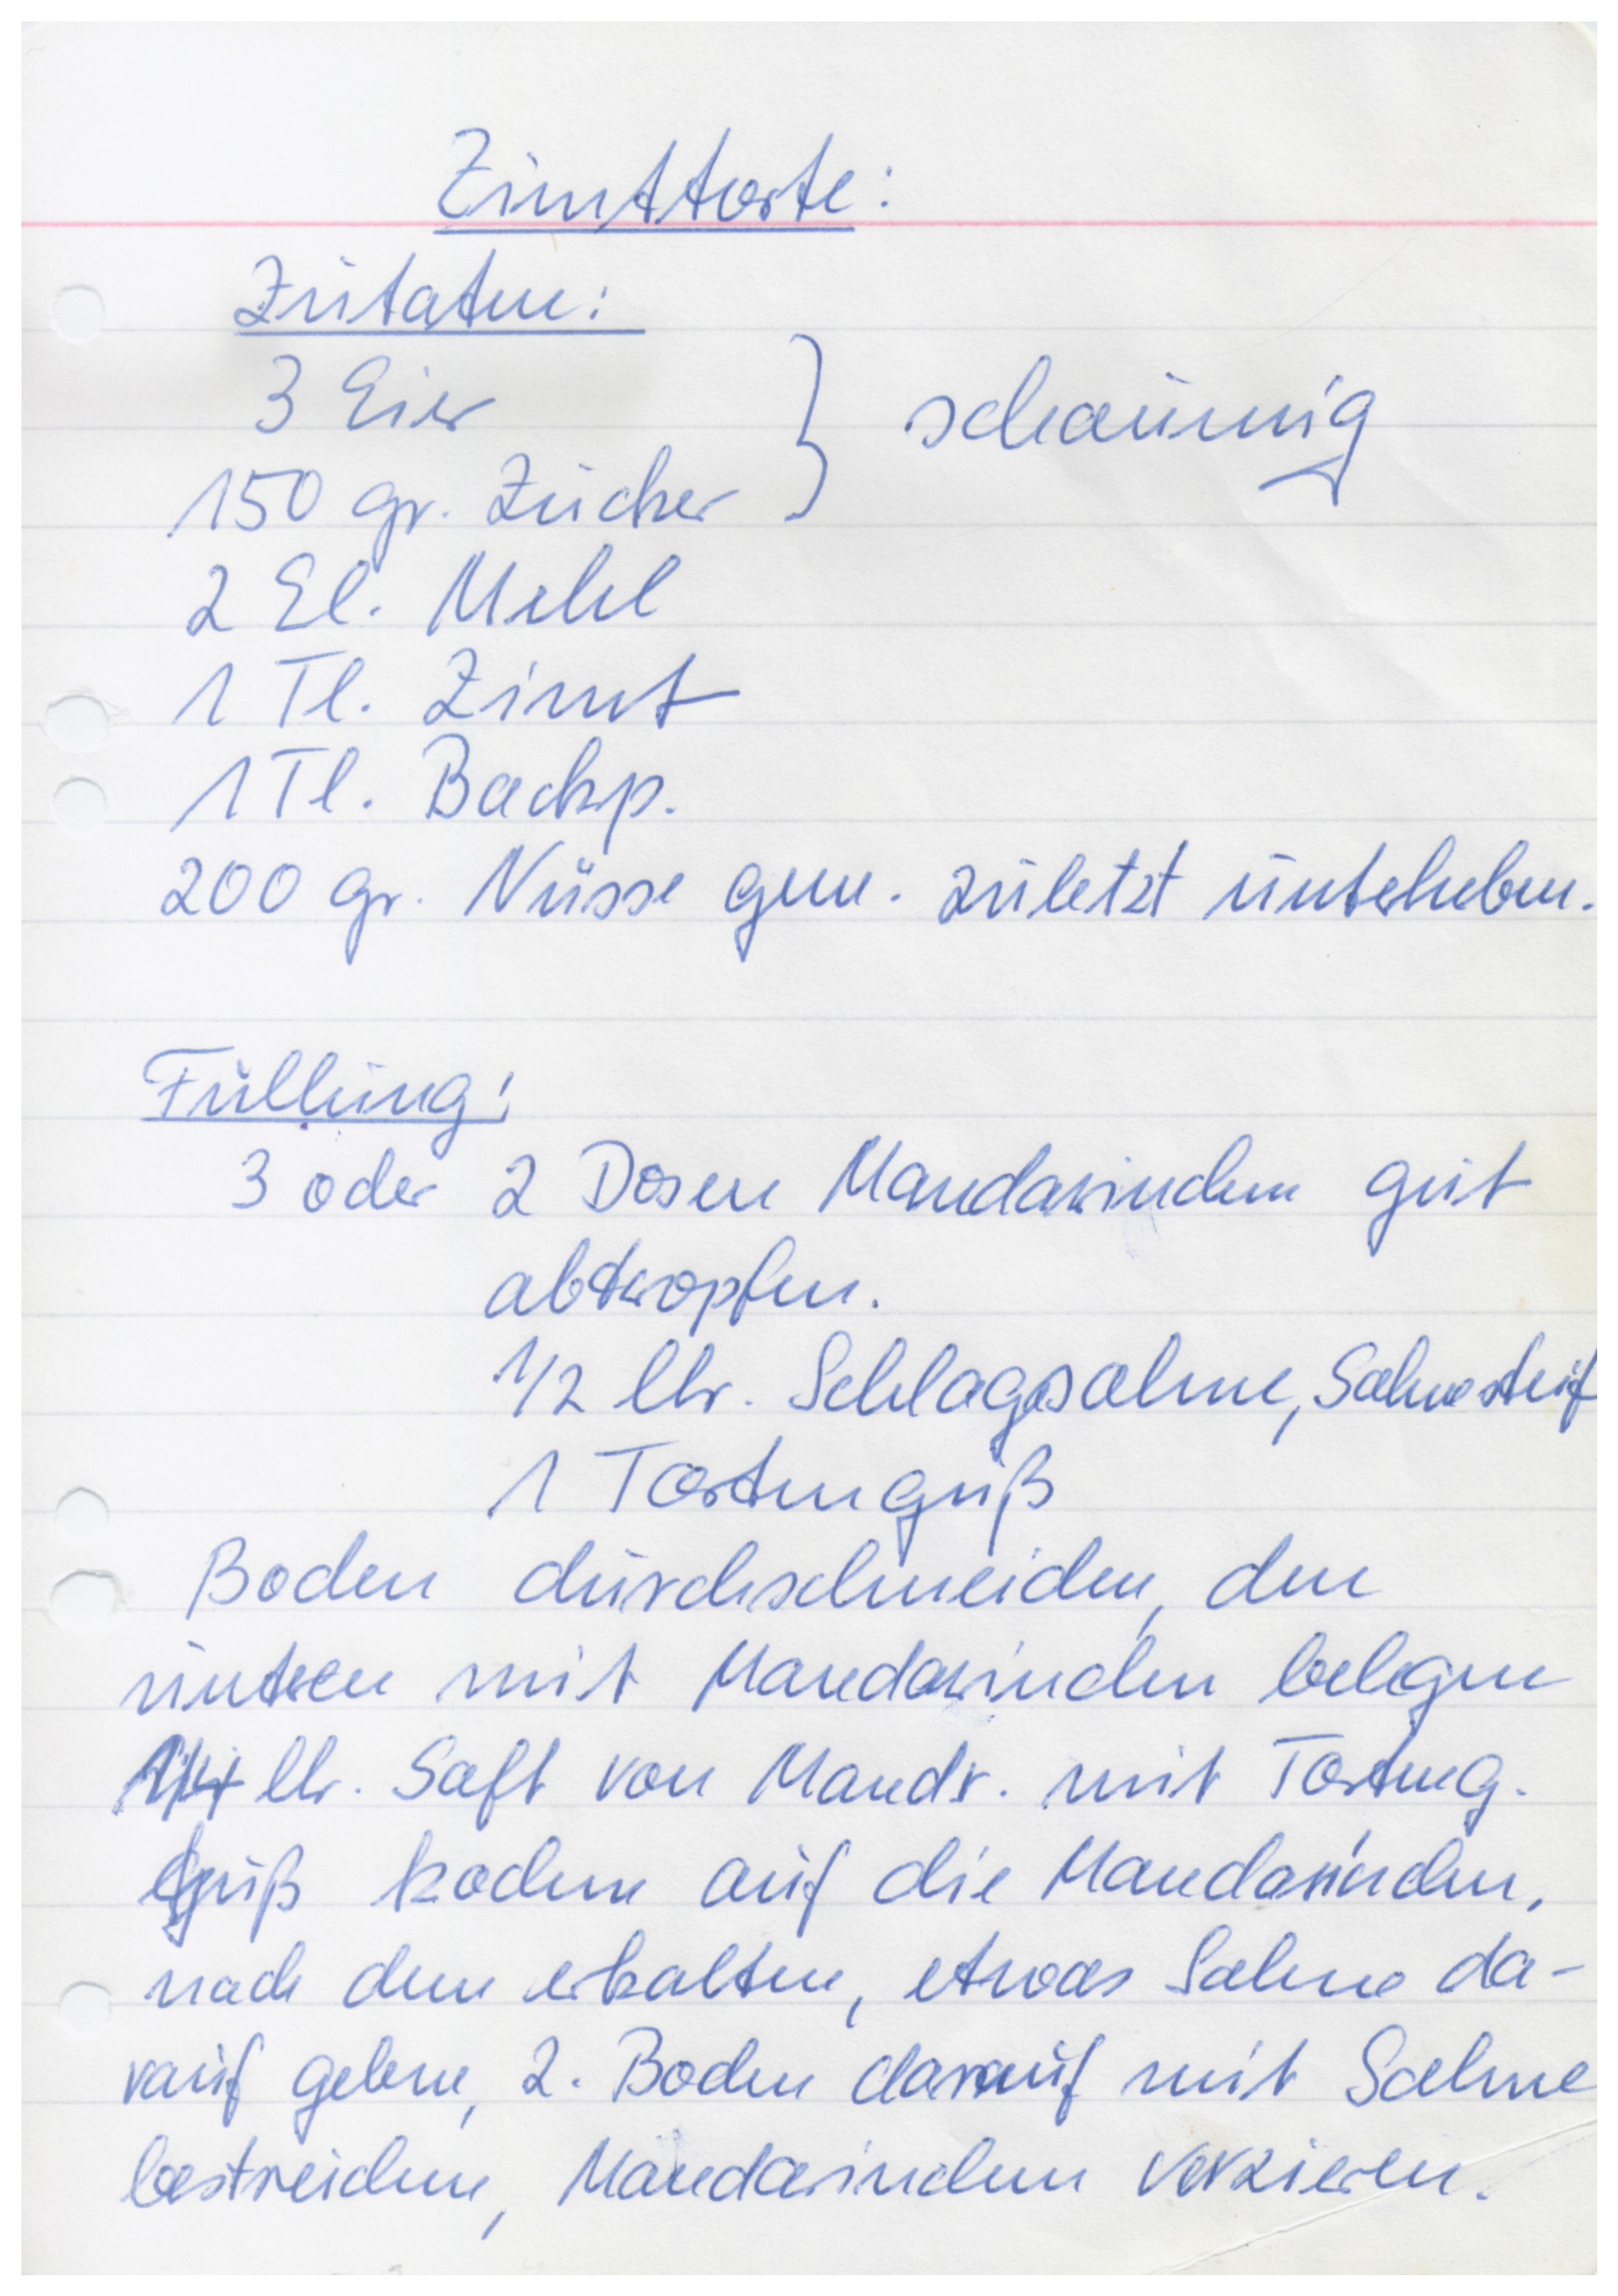 Zimttorte:
Zutaten:
3 Eier } schaumig
150 gr. Zucker
2 El. Mehl
1 Tl. Zimt
1 Tl. Backp.
200 gr. Nüsse gem. zuletzt unterheben.
Füllung:
3 oder 2 Dosen Mandarinchen gut
abtropfen.
1/2 ltr. Schlagsahne, Sahnesteif
1 Tortenguß
Boden durchschneiden, den
unteren mit Mandarinchen belegen
1/4 ltr. Saft von Mandr. mit Torteng.
guß kochen auf die Mandarinchen,
nach dem erkalten, etwas Sahne da-
rauf geben, 2. Boden darauf mit Sahne
bestreichen, Mandarinchen verzieren.